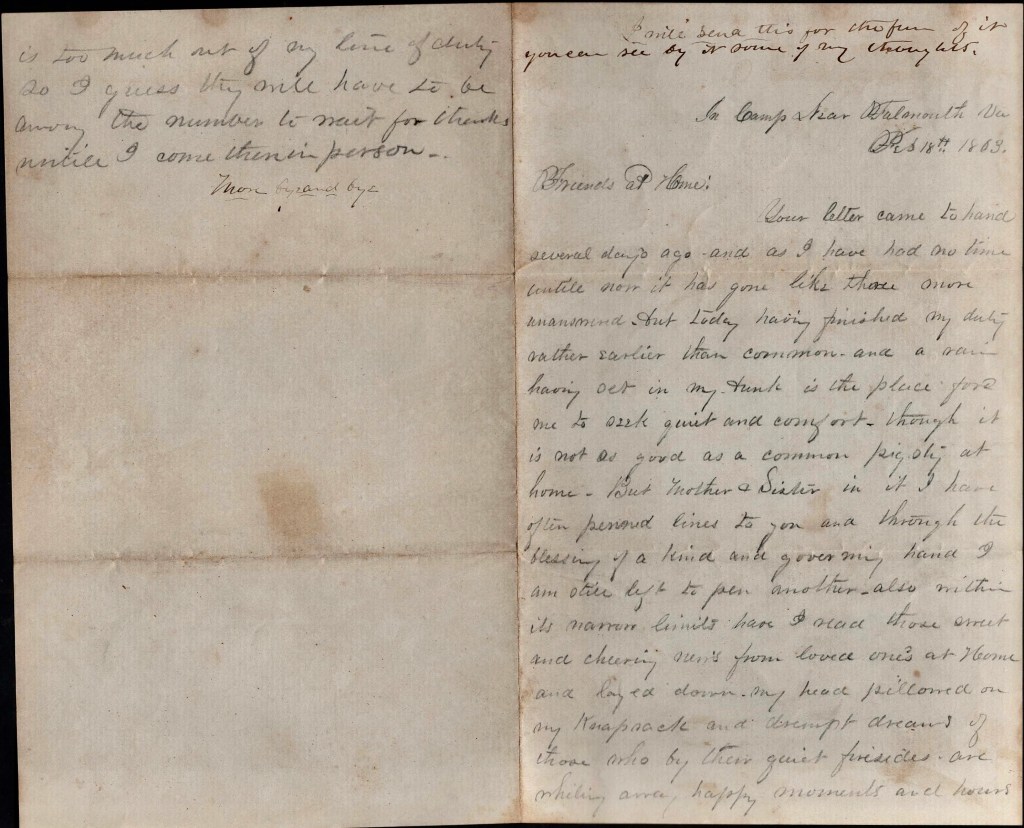 is too much out of my line of duty
so I guess they will have to be
among the number to wait for thanks
untill I come then in person -
More by and bye
I will send this for the fun of it
you can see by it some of my thoughts.
In Camp Near Falmouth Va
Feb 18th. 1863.
Friends at Home:
Your letter came to hand
several days ago - and as I have had no time
untill now it has gone like those more
unanswered. But today having finished my duty
rather earlier than common - and a rain
having set in my bunk is the place for
me to seek quiet and comfort - though it
is not as good as a common pigsty at
home - But Mother & Sister in it I have
often penned lines to you and through the
blessing of a kind and governing hand I
am still left to pen another - also within
its narrow limits have I read those sweet
and cheering news from loved one's at Home
and layed down - my head pillowed on
my Knapsack and drempt dreams of
those who by their quiet firesides - are
whiling away happy moments and hours